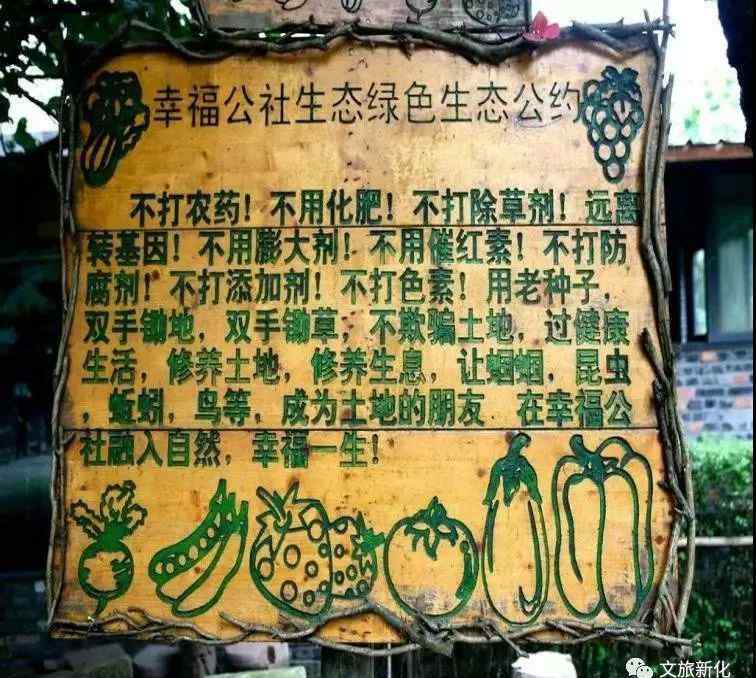 幸福公社生态绿色生态公约
不打农药！不用化肥！不打除草剂！远离
转基因！不用膨大剂！不用催红素！不打防
腐剂！不打添加剂！不打色素！用老种子，
双手锄地，双手锄草，不欺骗土地，过健康
生活，修养土地，修养生息，让蝈蝈，昆虫
，蚯蚓，鸟等，成为土地的朋友 在幸福公
社融入自然，幸福一生！
文旅新化